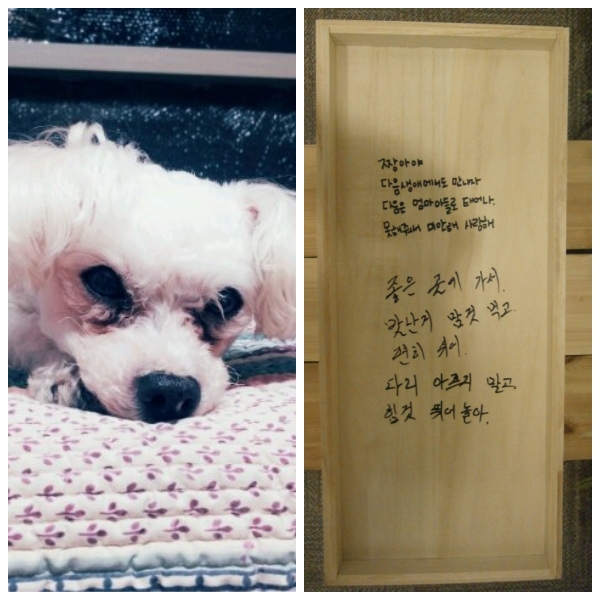 짱아야
다음생애에서도 만나자
다음은 엄마아들로 태어나.
못해줘서 미안해 사랑해
좋은 곳에 가서.
맛난거 맘껏 먹고.
편히 쉬어.
다리 아프지 말고
힘껏 뛰어 놀아.